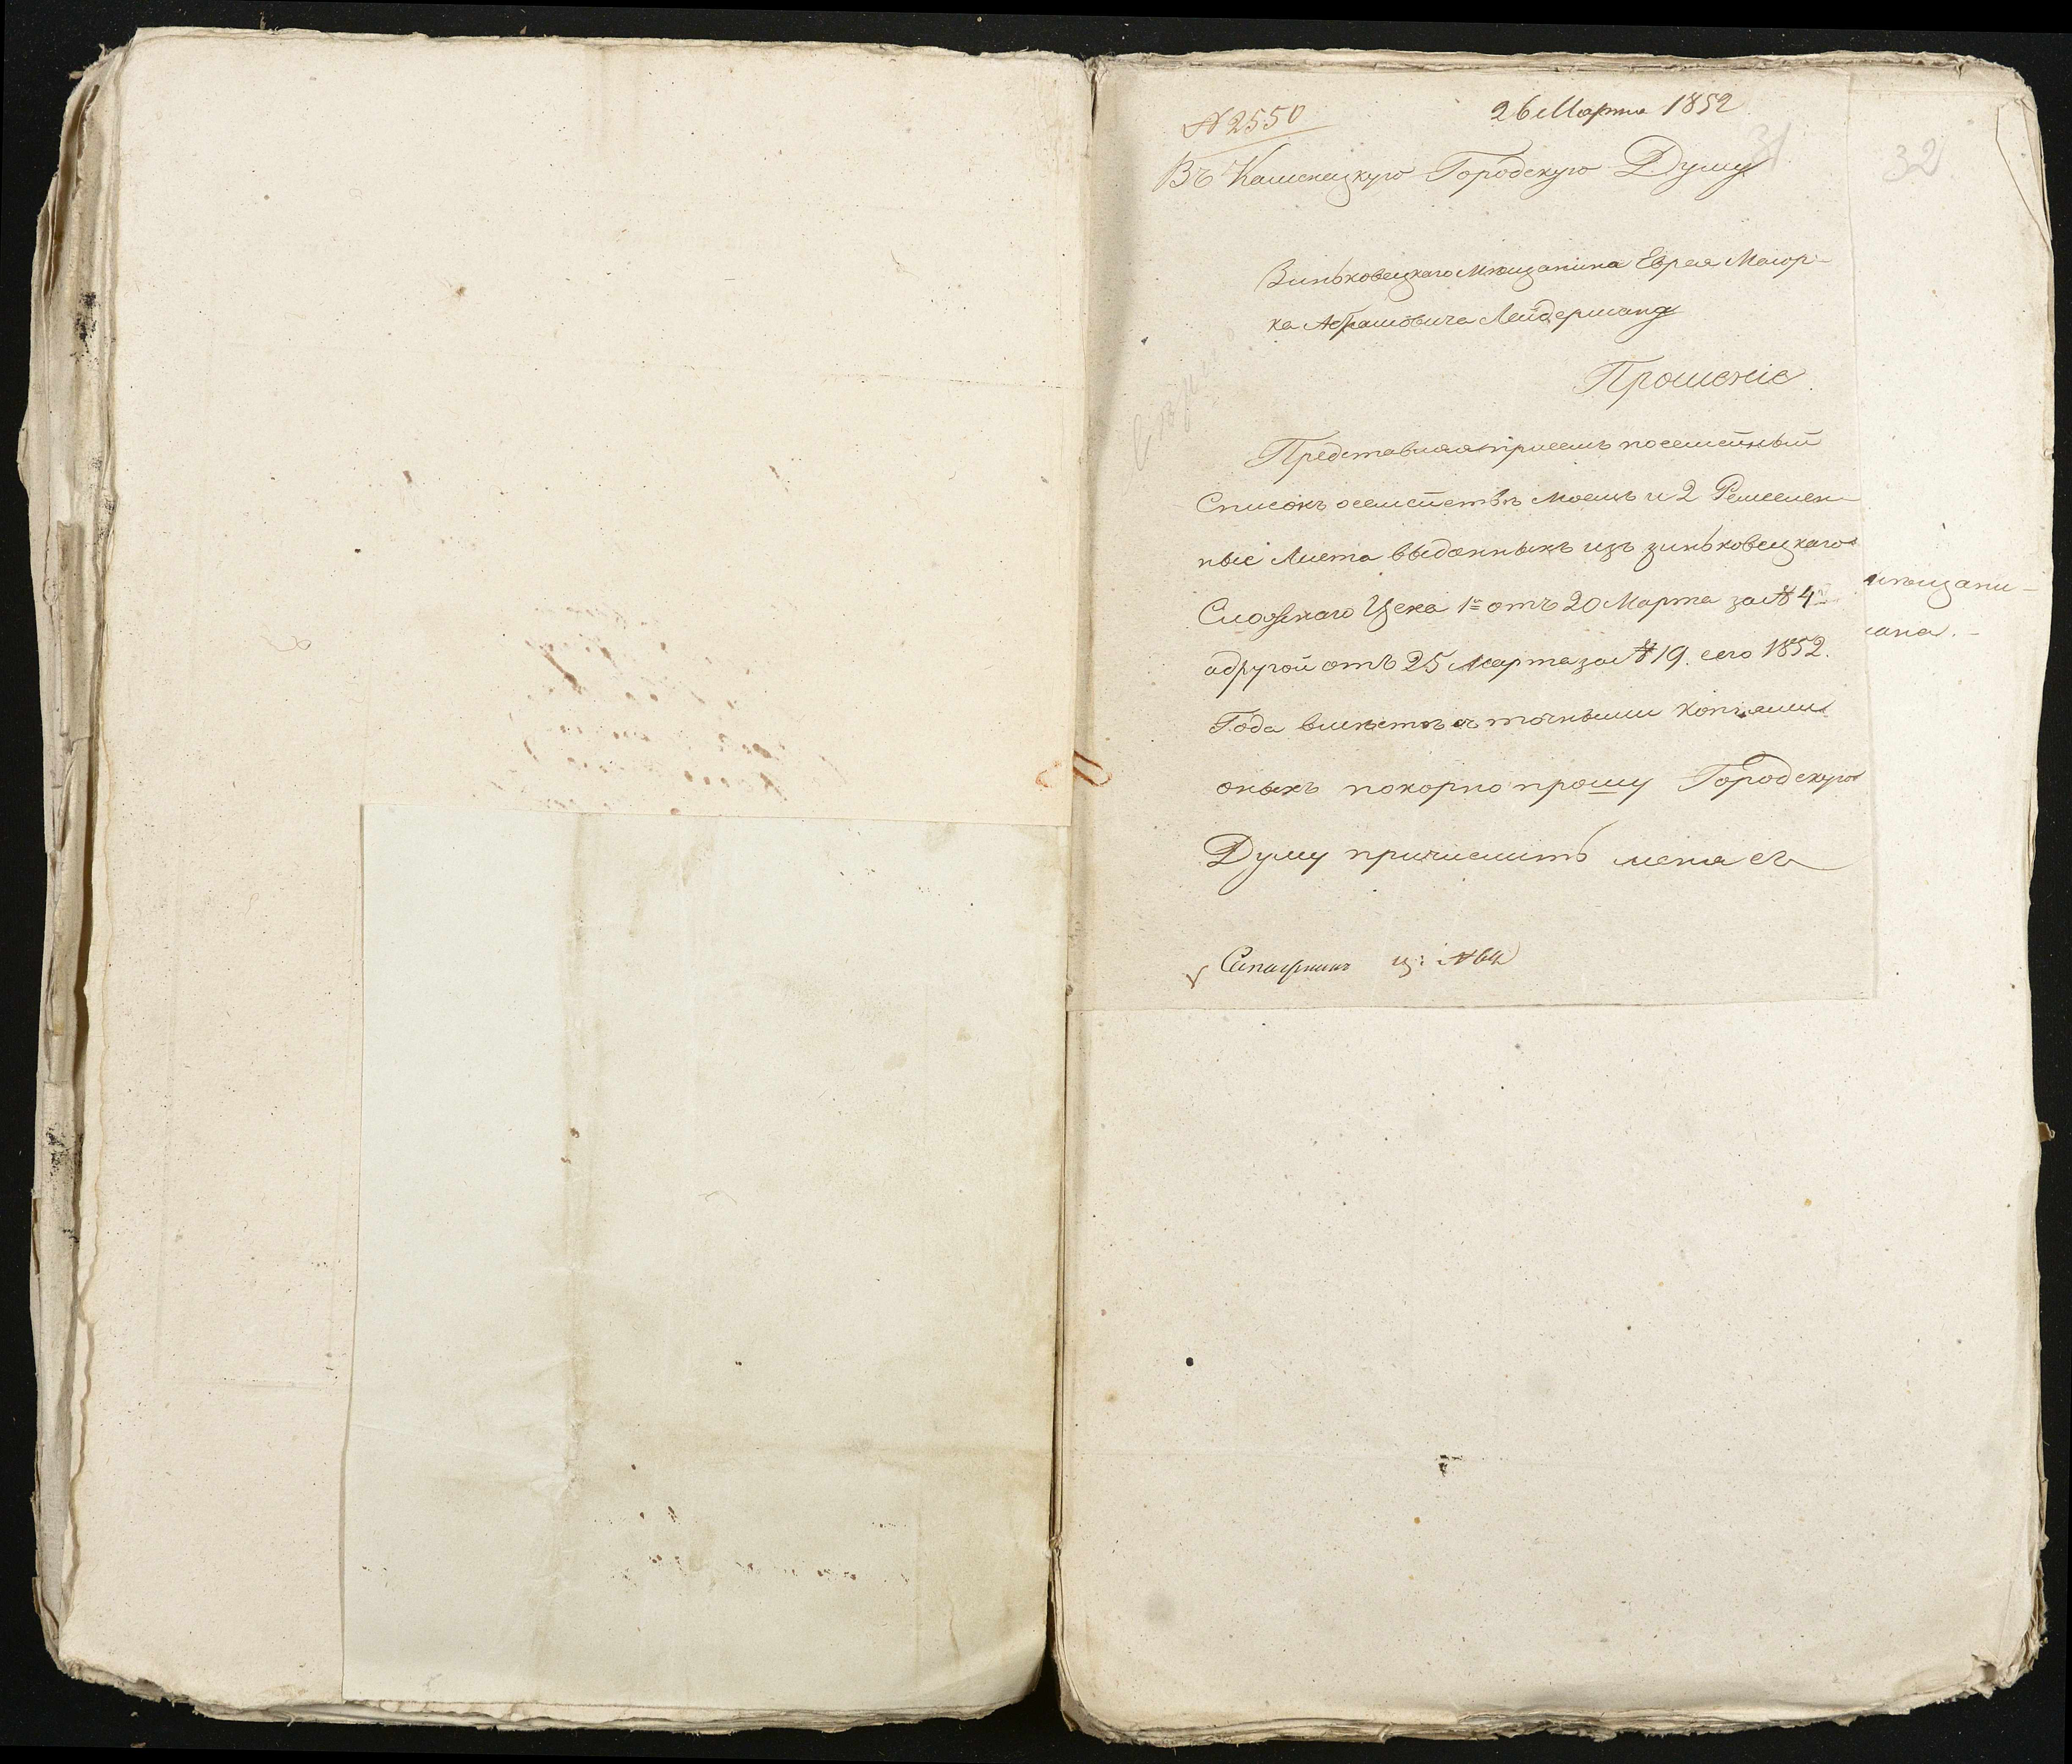 № 2550
26 Марта 1852
31
32
Въ Каменецкую Городскую Думу
Зиньковецкаго Мѣщанина Еврея Маіор-
ка Абрамовича Лейдермана
Прошеніе
Представляя присемъ посемейный
Списокъ осемействѣ моемъ и 2 Ремеслен-
ные Листа выданныхъ изъ зиньковецкаго
Цеха 1й отъ 20 Марта за № 4й
адругой отъ 25 Марта за № 19. сего 1852.
Года вмѣстѣ съ точными копіями
оныхъ покорно прошу Городскую
Думу причислить меня съ
ц: № 64
мѣщани-
мана.-